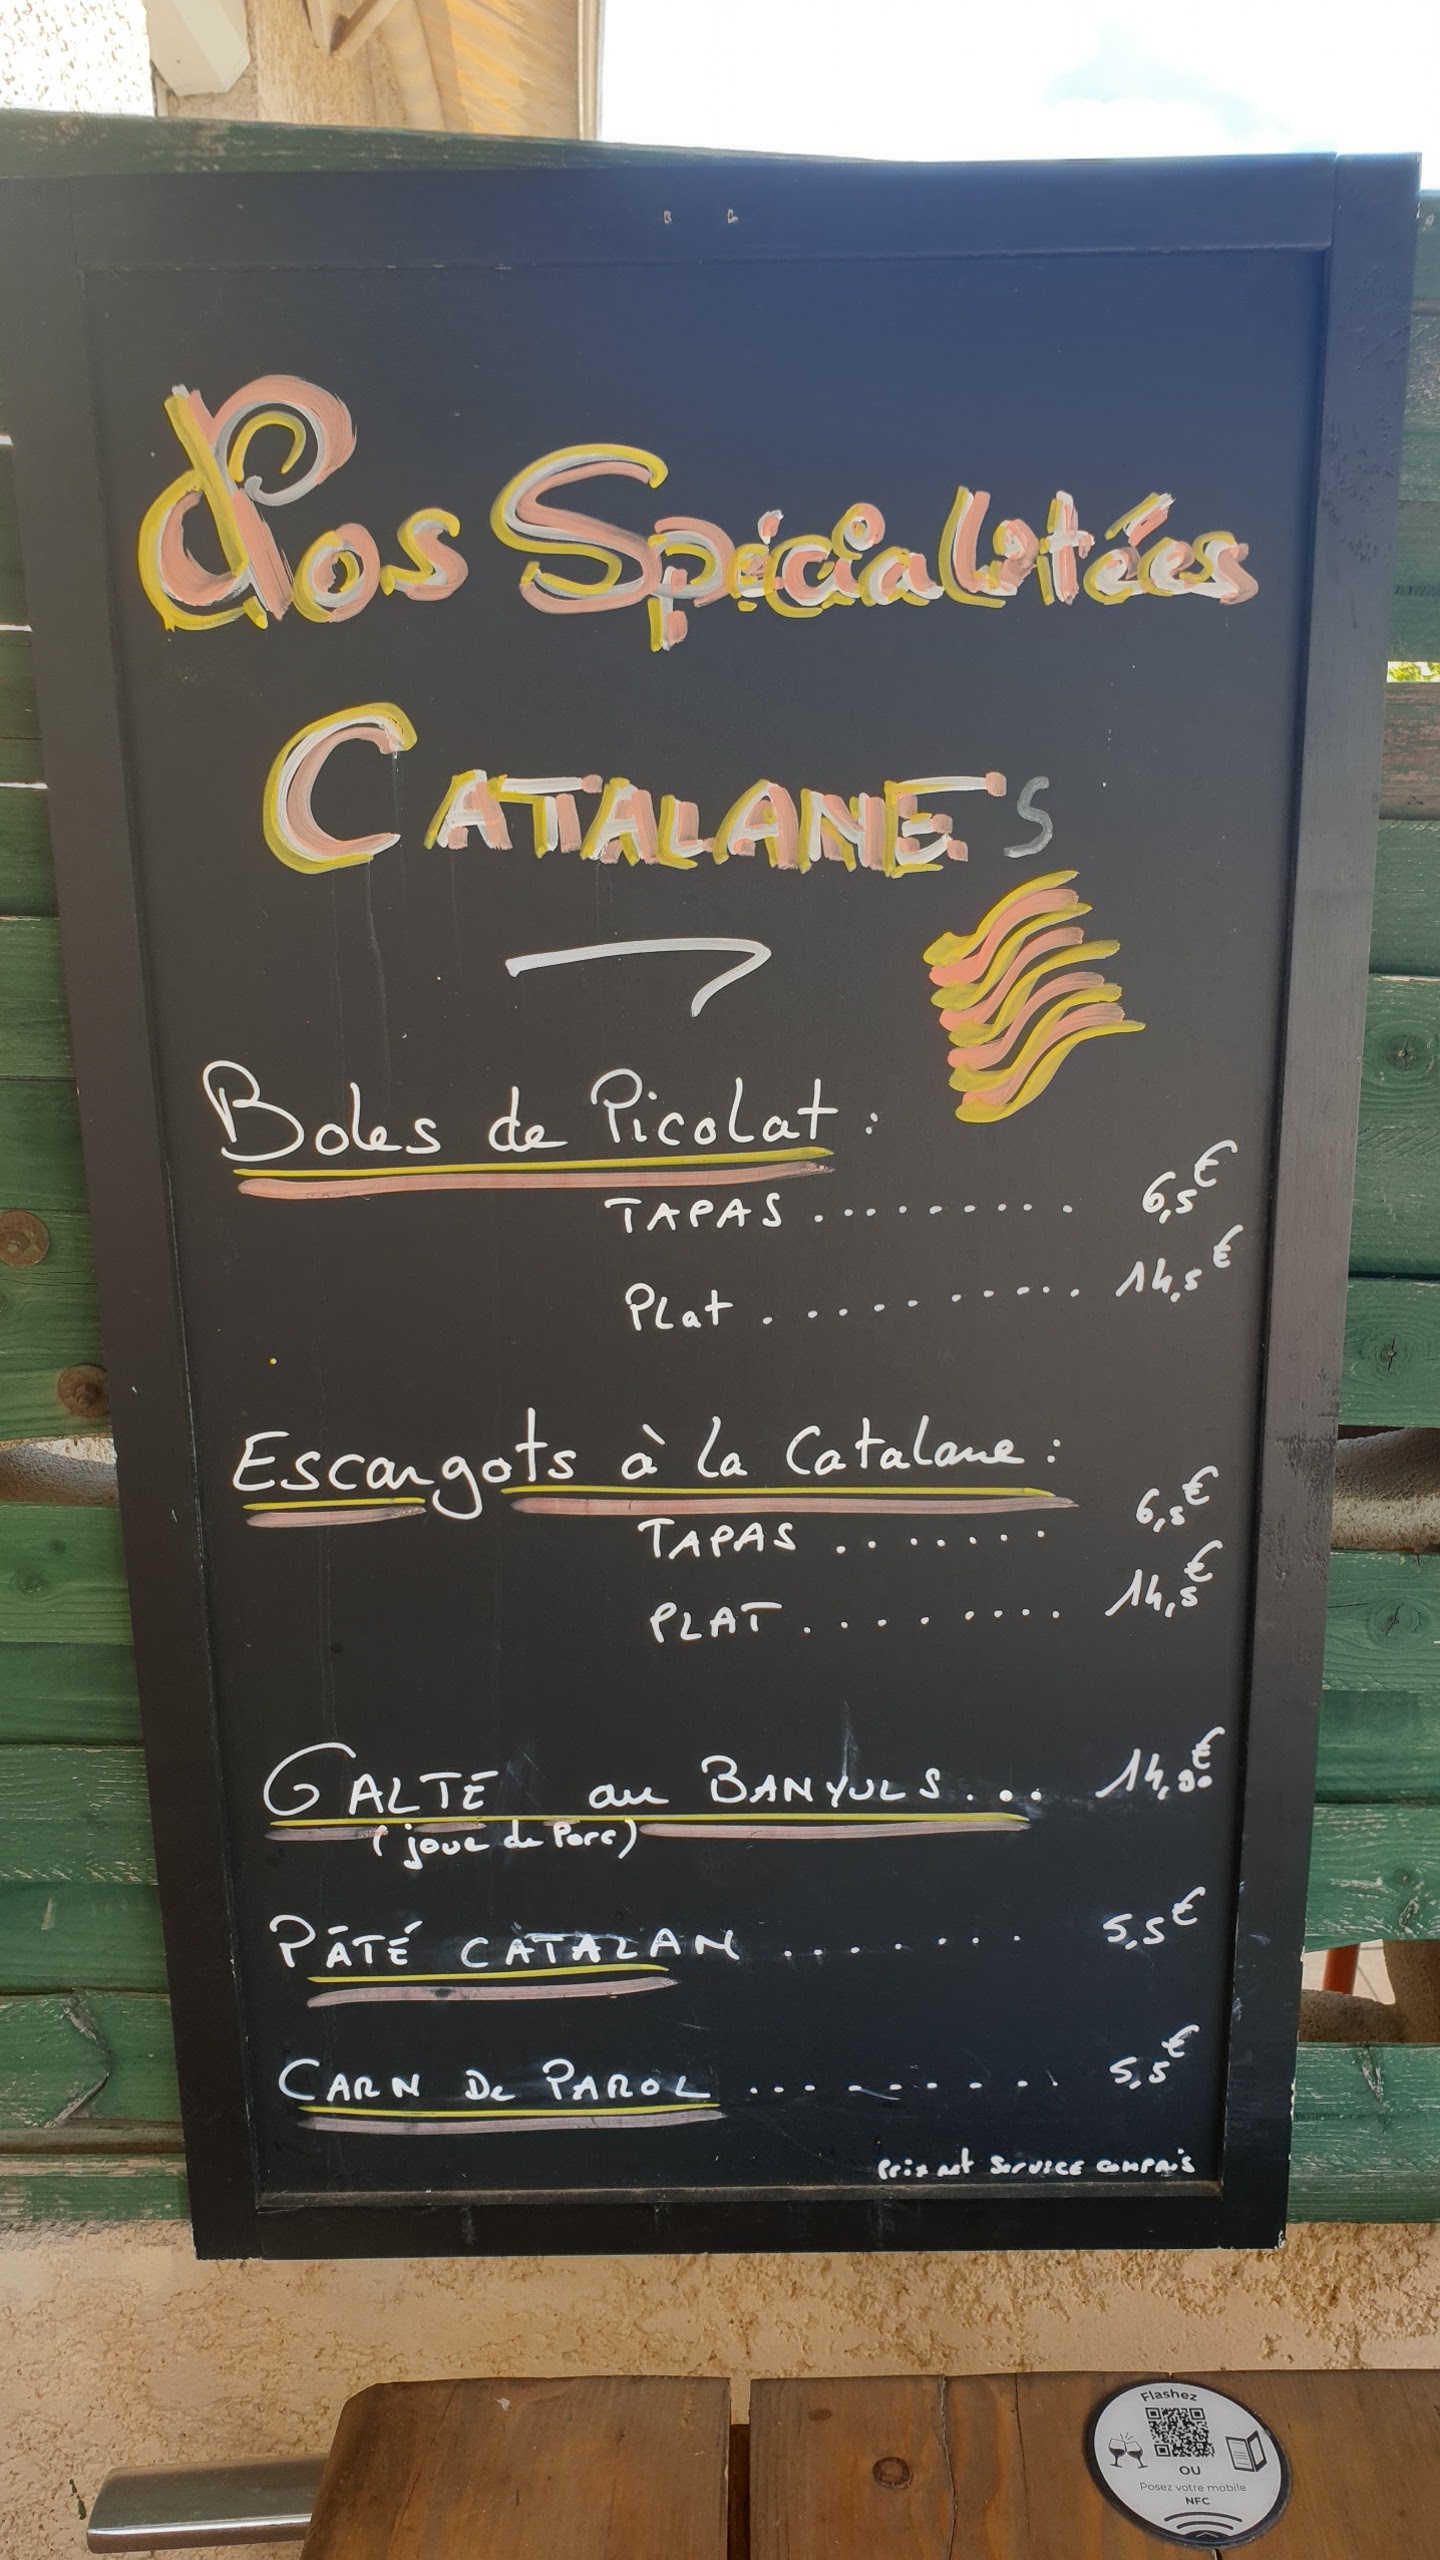 Nos Spécialitées
CATALANES
Boles de Picolat :
TAPAS .......... 6,5€
Plat ........... 14,5€
Escargots à la Catalane :
TAPAS ....... 6,5€
PLAT ......... 14,5€
GALTE au BANYULS... 14,90€
(joue de Porc)
PÂTÉ CATALAN ........ 5,5€
CARN De PAROL .......... 5,5€
Prix net Service compris
Flashez
OU
Posez votre mobile
NFC